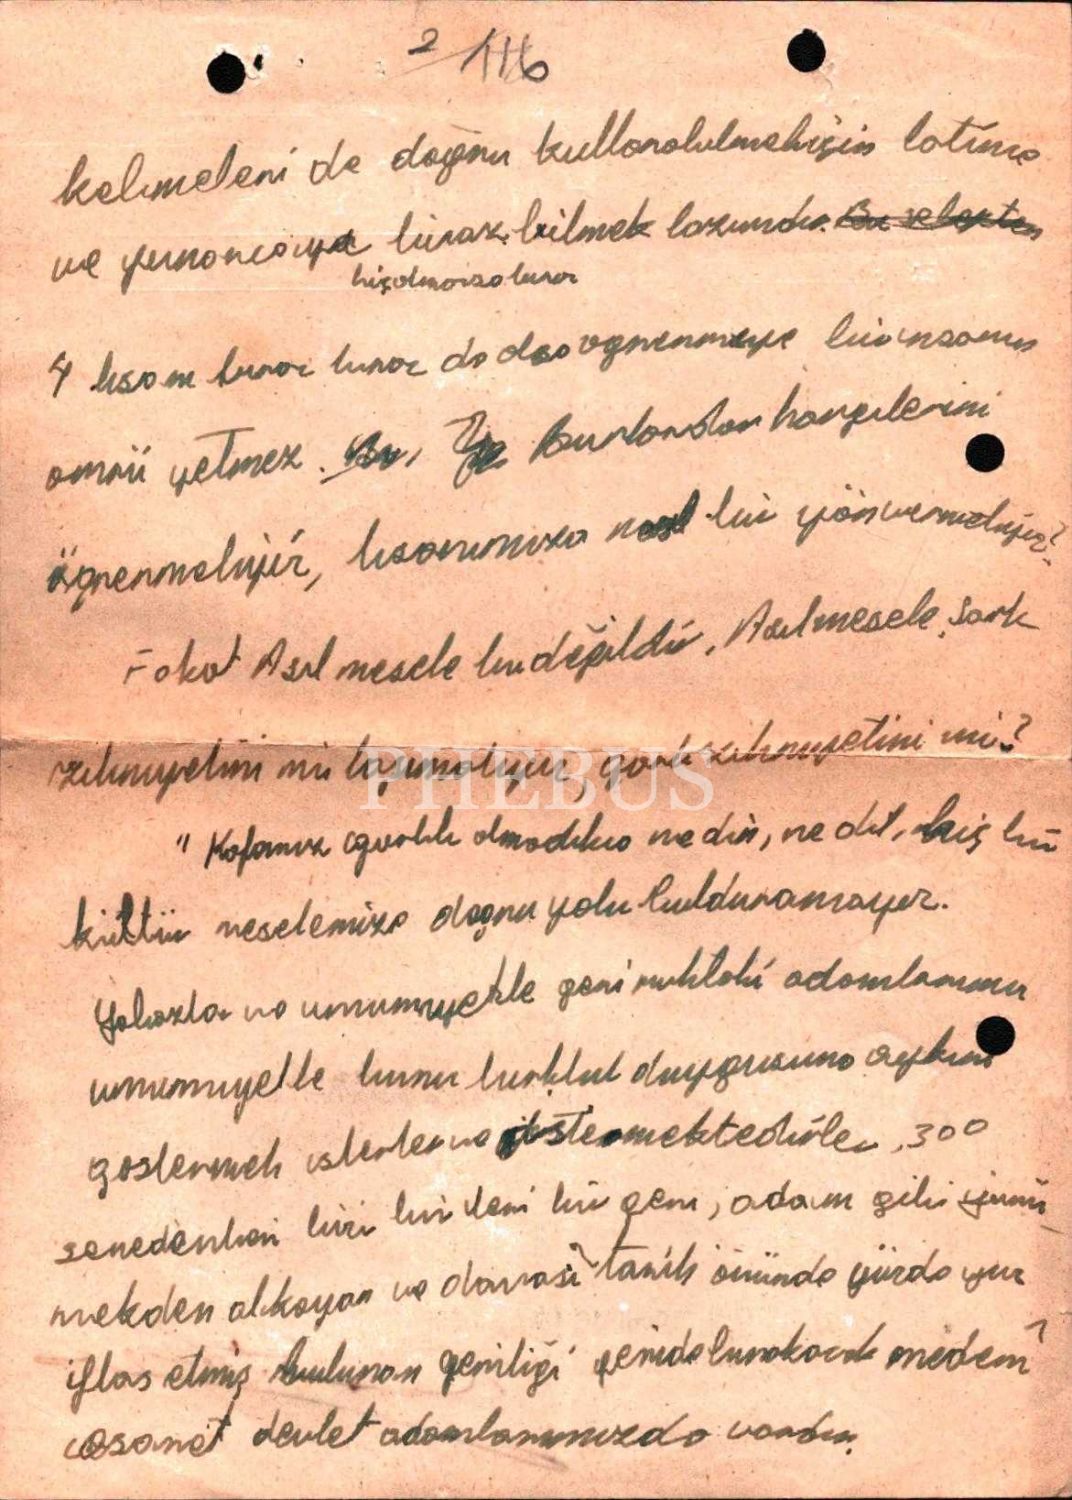 2 116
kelimeleri de doğru kullanabilmek için latince
ve yunancaya biraz bilmek lazımdır. Bu sebepten
hiç olmazsa birer
4 lisanı birer birer daha öğrenmeye bir insanın
ömrü yetmez. Bu, Ye Bunlardan hangilerini
öğrenmeliyiz, lisanımıza nasıl bir yön vermeliyiz?
Fakat Asıl mesele bu değildir. Asıl mesele, Şark
zihniyetini mi taşımalıyız, garb zihniyetini mi?
" Kafamız garblı olmadıkca ne din, ne dil, hiç bir
kültür meselemize doğru yolu bulduramayız.
Yobazlar ve umumiyetle geri ruhtaki adamlarımız
umumiyetle bunu turklük duygusuna aykırı
göstermek isterler ve göstermektedirler. 300
senedenberi bizi bir deri bir gem, adam gibi yürü
mekden alkoyan ve davası tarih önünde yüzde yüz
iflas etmiş bulunan geriliği yeride bırakacak medeni
cesaret devlet adamlarımızda vardır.
PHEBUS